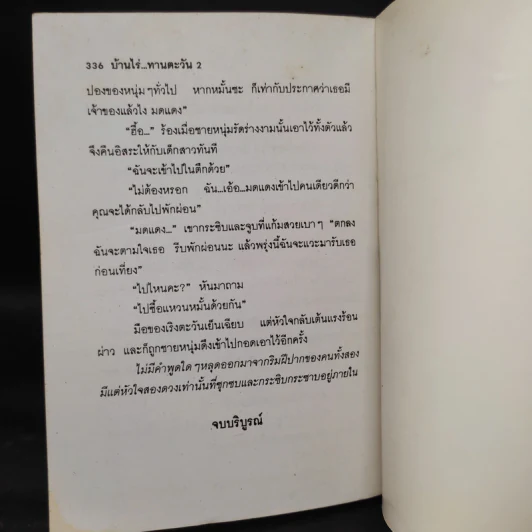 336 บ้านไร่...ทานตะวัน 2
ปองของหนุ่มๆทั่วไป หากหมั้นซะ ก็เท่ากับประกาศว่าเธอมี
เจ้าของแล้วไง มดแดง”
“อื้อ...” ร้องเมื่อชายหนุ่มรัดร่างงามนั้นเอาไว้ทั้งตัวแล้ว
จึงคืนอิสระให้กับเด็กสาวทันที
“ฉันจะเข้าไปในตึกด้วย”
“ไม่ต้องหรอก ฉัน...เอ้อ...มดแดงเข้าไปคนเดียวดีกว่า
คุณจะได้กลับไปพักผ่อน”
“มดแดง...” เขากระซิบและจูบที่แก้มสวยเบาๆ “ตกลง
ฉันจะตามใจเธอ รีบพักผ่อนนะ แล้วพรุ่งนี้ฉันจะแวะมารับเธอ
ก่อนเที่ยง”
“ไปไหนคะ?” หันมาถาม
“ไปซื้อแหวนหมั้นด้วยกัน”
มือของเริงตะวันเย็นเฉียบ แต่หัวใจกลับเต้นแรงร้อน
ผ่าว และก็ถูกชายหนุ่มดึงเข้าไปกอดเอาไว้อีกครั้ง
ไม่มีคำพูดใดๆหลุดออกมาจากริมฝีปากของคนทั้งสอง
มีแต่หัวใจสองดวงเท่านั้นที่ซุกซบและกระซิบกระซาบอยู่ภายใน
จบบริบูรณ์